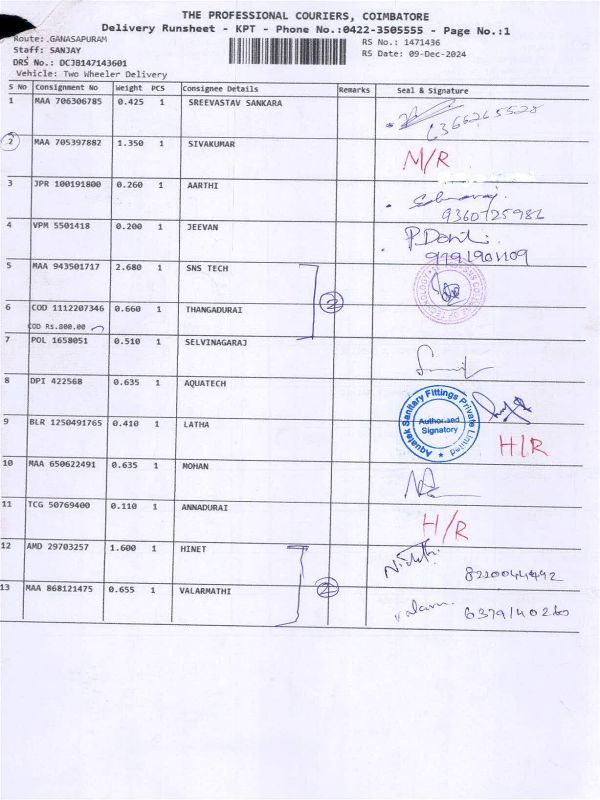 THE PROFESSIONAL COURIERS, COIMBATORE
Delivery Runsheet - KPT - Phone No.:0422-3505555 - Page No.:1
Route: .GANASAPURAM
Staff: SANJAY
DRS No: DCJB147143601
Vehicle: Two Wheeler Delivery
RS No.: 1471436
RS Date: 09-Dec-2024
S No Consignment No Weight PCS Consignee Details Remarks Seal & Signature
1 MAA 706306785 0.425 1 SREEVASTAV SANKARA
6366265528
2 MAA 705397882 1.350 1 SIVAKUMAR M/R
3 JPR 100191800 0.260 1 AARTHI
9360725986
4 VPM 5501418 0.200 1 JEEVAN
5 MAA 943501717 2.680 1 SNS TECH
2
6 COD 1112207346 0.660 1 THANGADURAI
COD Rs.800.00
7 POL 1658051 0.510 1 SELVINAGARAJ
8 DPI 422568 0.635 1 AQUATECH
Aquatek Sanitary Fittings Private Limited
Authorised Signatory
9 BLR 1250491765 0.410 1 LATHA H/R
10 MAA 650622491 0.635 1 MOHAN
11 TCG 50769400 0.110 1 ANNADURAI H/R
12 AMD 29703257 1.600 1 HINET
8220044492
2
13 MAA 868121475 0.655 1 VALARMATHI
valarm 6379140260